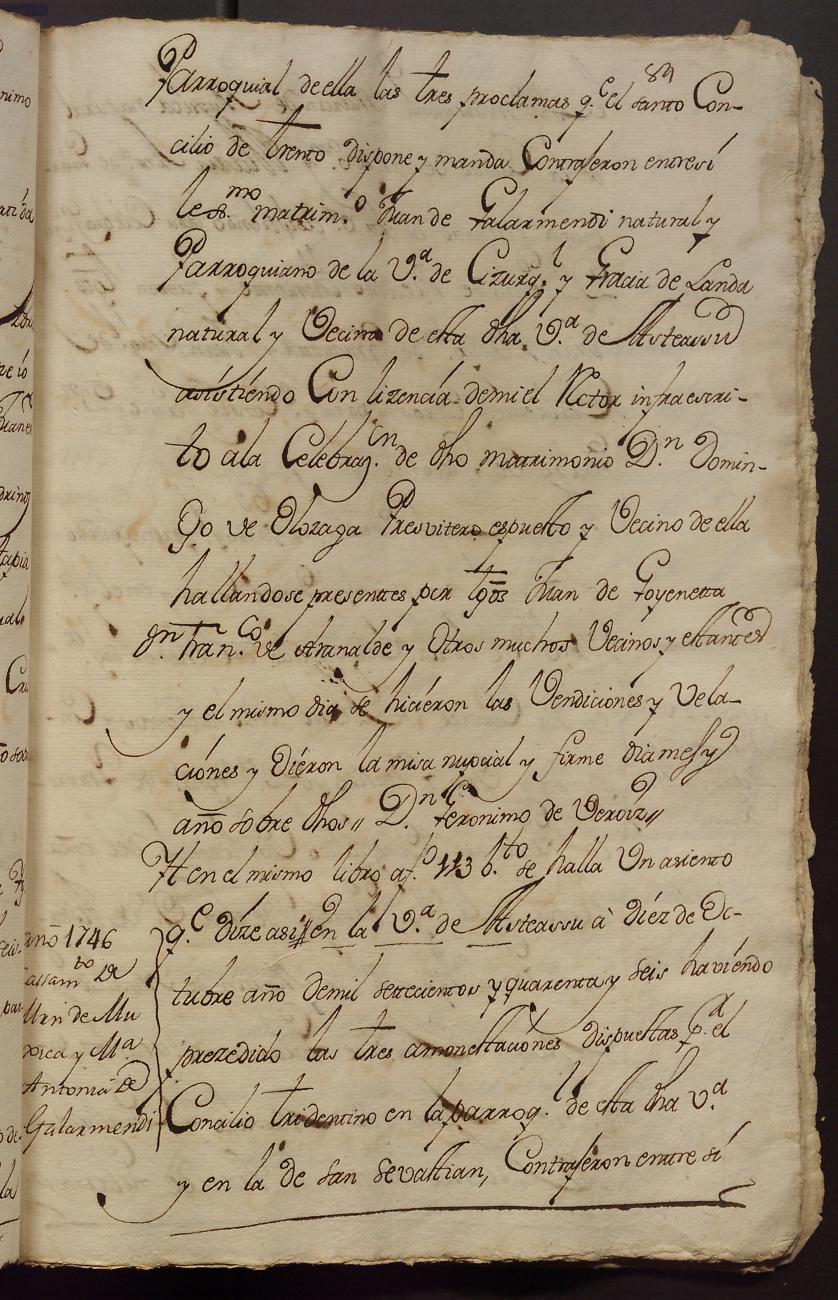 84
Parroquial de ella las tres proclamas q.e el santo Con-
cilio de trento dispone y manda Contrajeron entresí
lexs.mo matrim.o Juan de Galarmendi natural y
Parroquiano de la V.a de Cizurq.l y Gracia de Landa
natural y Vecina de esta dha V.a de Asteassu
asistiendo Con lizencia demi el Rector infraescri-
to a la Celebraz.on de dho matrimonio D.n Domin-
go de Olozaga Presvitero espuesto y Vecino de ella
hallandose presentes por tgõs Juan de Goyenetta
Dn. Fran.co de Aranalde y Otros muchos Vecinos y estantes
y el mismo dia se hicieron las Vendiciones y Vela-
ciones y Dieron la misa nupcial y firme dia mes y
año sobre dhos,, D.n Geronimo de Veroiz,,
Yt en el mismo libro a f.o 113 b.to se halla Un asiento
q.e dize asi,, en la V.a de Asteassu à diéz de Oc-
tubre año demil settecientos y quarenta y seis haviendo
prezedido las tres amonestaciónes dispuestas p.a el
Concilio tridentino en la parroq.l de esta dha V.a
y en la de san sevastian, Contrajeron entre sí
anõ 1746
Cassam.to de
Mrn de Mu
xica y M.a
Antonia de
Galarmendi